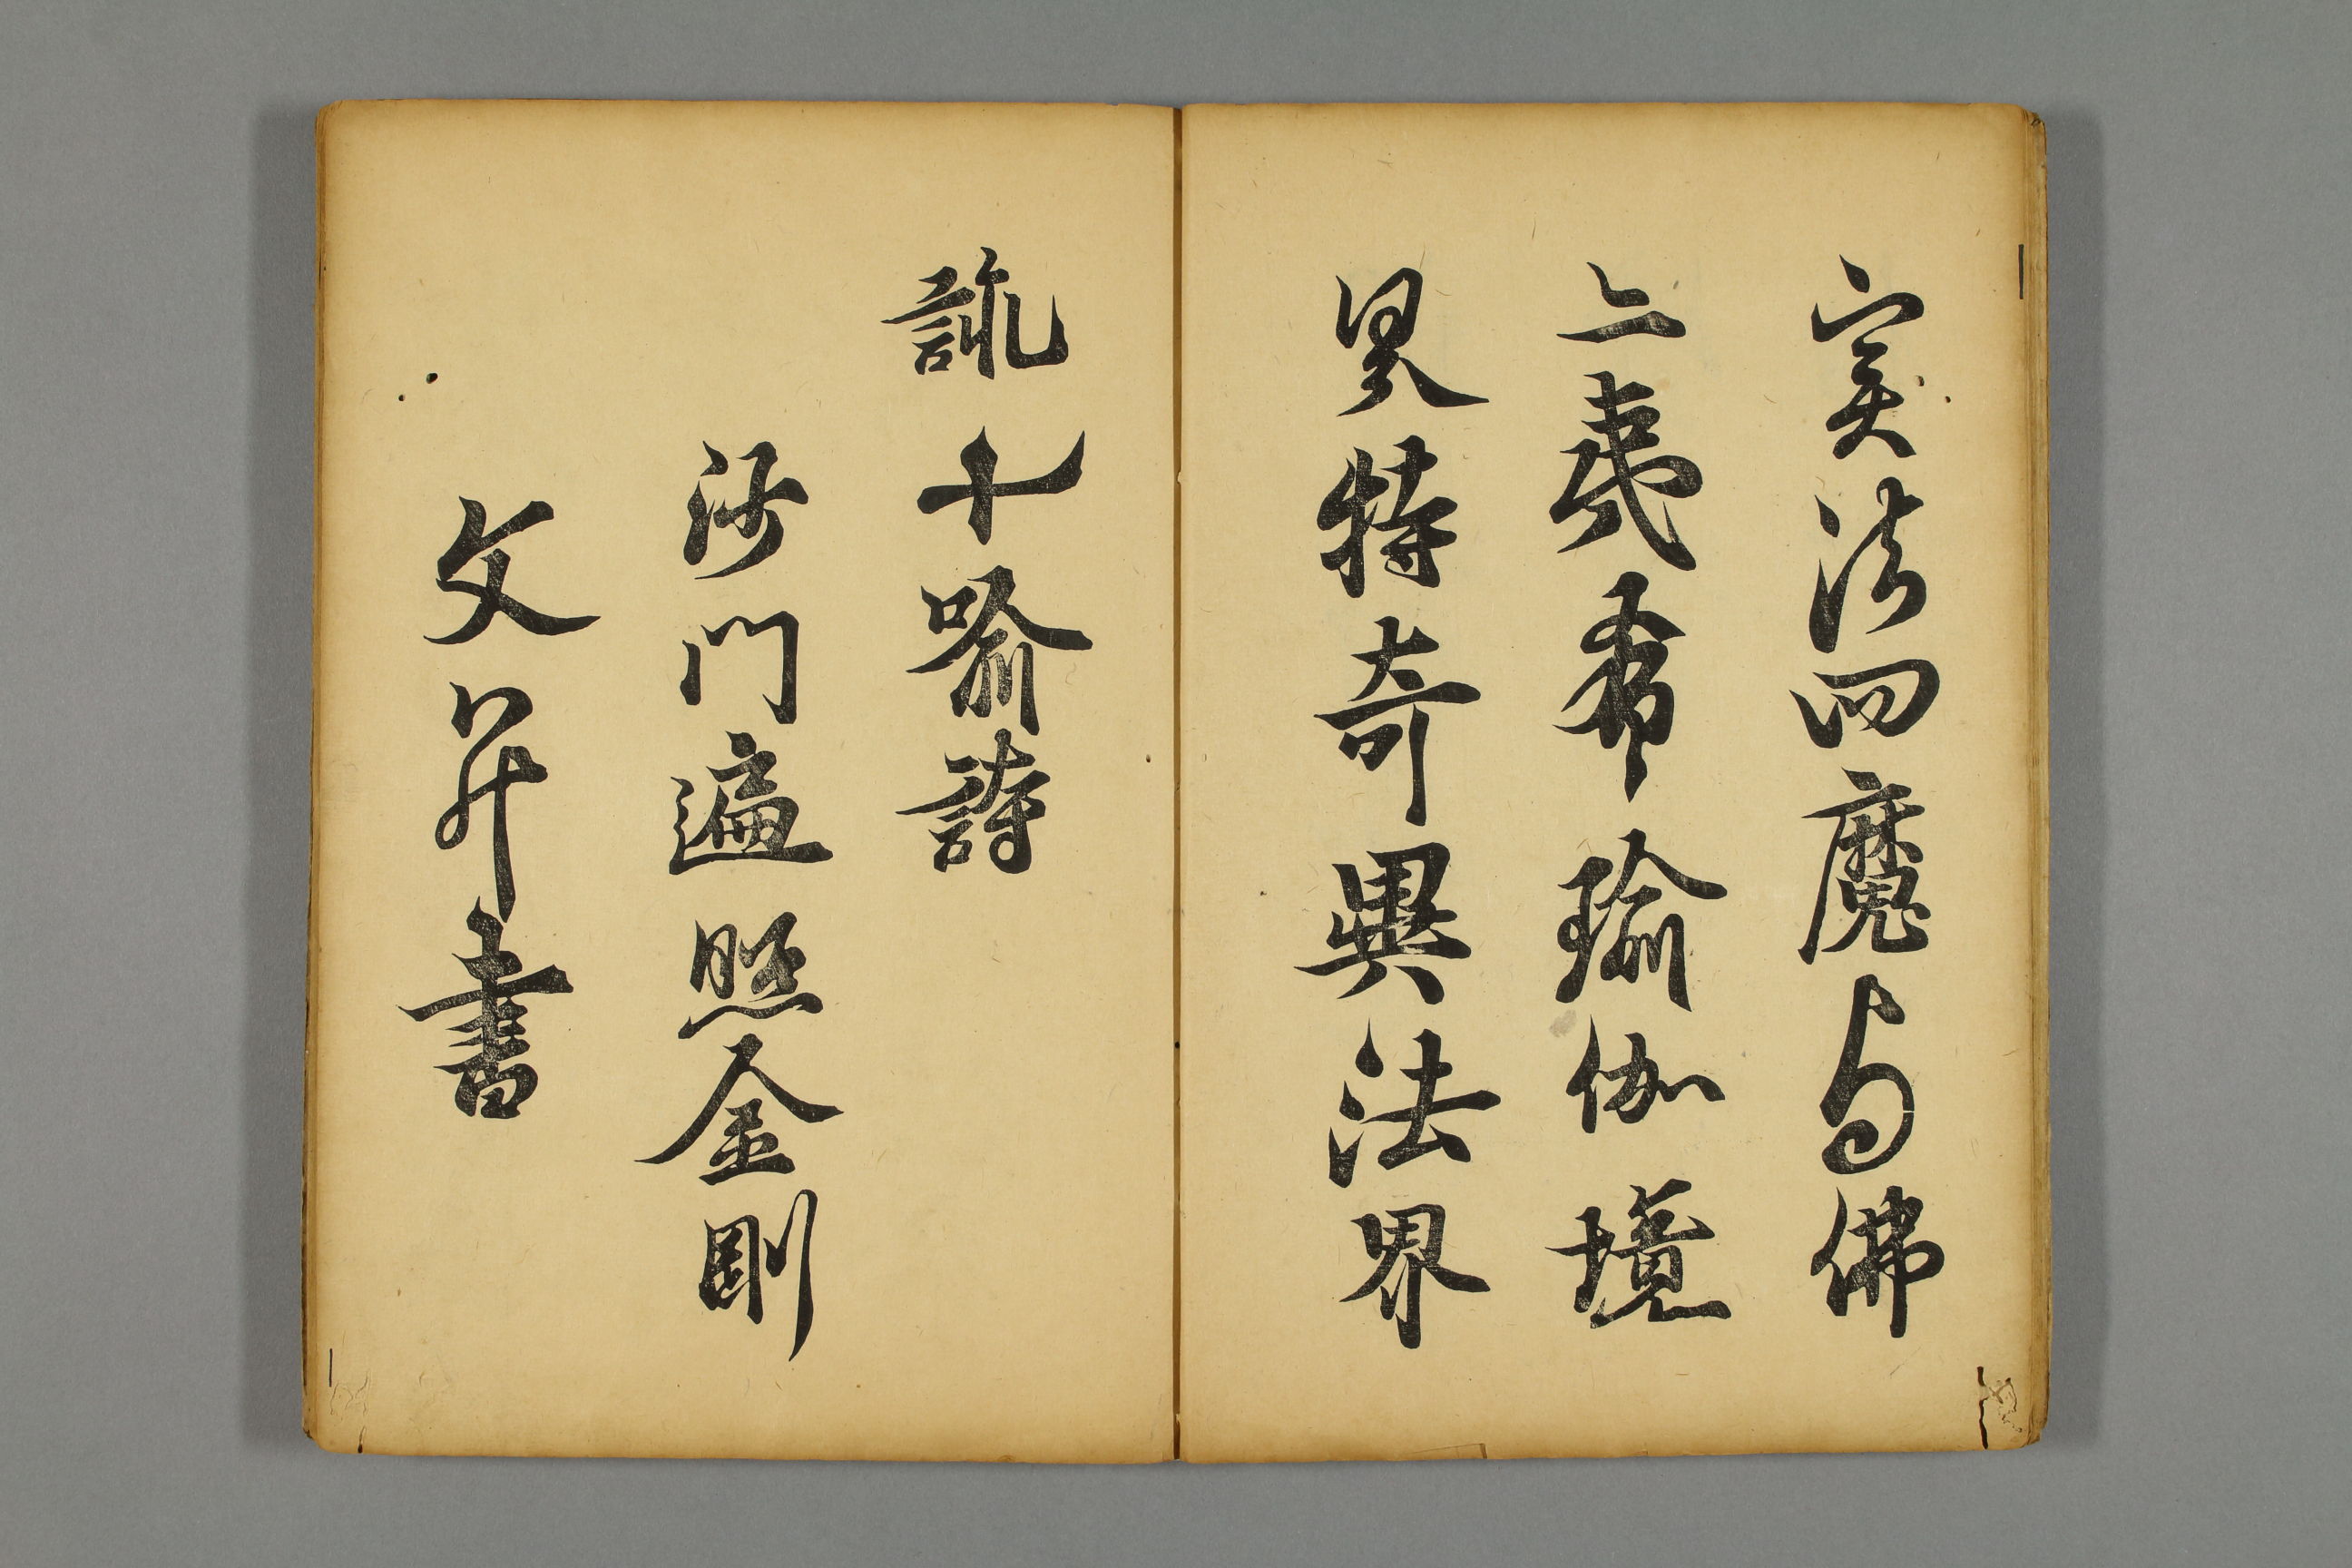 実法四魔与佛
亦夷希瑜伽境
界特奇異法界
詠十喻詩
沙門遍照金剛
文并書